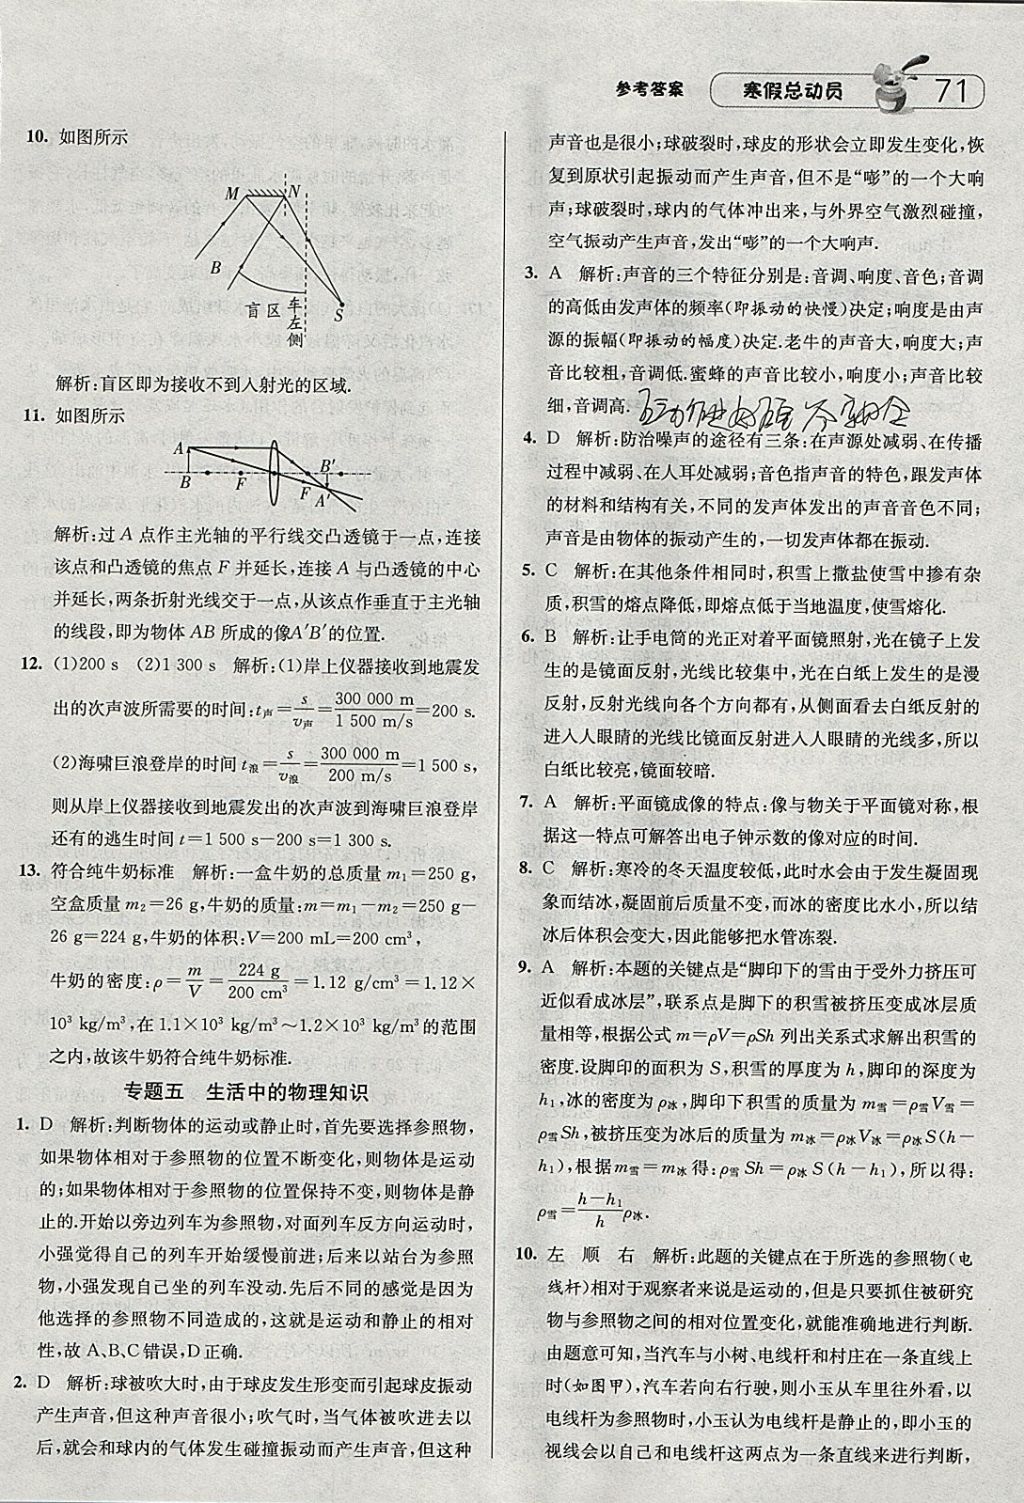 参考答案 寒假总动员 71
10. 如图所示
M N
B
盲区 车左侧 S
解析:盲区即为接收不到入射光的区域.
11. 如图所示
A B′
B F F A′
解析:过 A 点作主光轴的平行线交凸透镜于一点,连接
该点和凸透镜的焦点 F 并延长,连接 A 与凸透镜的中心
并延长,两条折射光线交于一点,从该点作垂直于主光轴
的线段,即为物体 AB 所成的像A′B′的位置.
12. (1)200 s (2)1 300 s 解析:(1)岸上仪器接收到地震发
出的次声波所需要的时间:t声=s/v声=300 000 m/1 500 m/s=200 s.
(2)海啸巨浪登岸的时间t浪=s/v浪=300 000 m/200 m/s=1 500 s,
则从岸上仪器接收到地震发出的次声波到海啸巨浪登岸
还有的逃生时间 t=1 500 s-200 s=1 300 s.
13. 符合纯牛奶标准 解析:一盒牛奶的总质量 m₁=250 g,
空盒质量 m₂=26 g,牛奶的质量:m=m₁-m₂=250 g-
26 g=224 g,牛奶的体积:V=200 mL=200 cm³,
牛奶的密度:ρ=m/V=224 g/200 cm³=1.12 g/cm³=1.12×
10³ kg/m³,在 1.1×10³ kg/m³~1.2×10³ kg/m³的范围
之内,故该牛奶符合纯牛奶标准.
专题五 生活中的物理知识
1. D 解析:判断物体的运动或静止时,首先要选择参照物,
如果物体相对于参照物的位置不断变化,则物体是运动
的;如果物体相对于参照物的位置保持不变,则物体是静
止的.开始以旁边列车为参照物,对面列车反方向运动时,
小强觉得自己的列车开始缓慢前进;后来以站台为参照
物,小强发现自己坐的列车没动.先后不同的感觉是因为
他选择的参照物不同造成的,这就是运动和静止的相对
性,故 A、B、C 错误,D 正确.
2. D 解析:球被吹大时,由于球皮发生形变而引起球皮振动
产生声音,但这种声音很小;吹气时,当气体被吹进去以
后,就会和球内的气体发生碰撞振动而产生声音,但这种
声音也是很小;球破裂时,球皮的形状会立即发生变化,恢
复到原状引起振动而产生声音,但不是“嘭”的一个大响
声;球破裂时,球内的气体冲出来,与外界空气激烈碰撞,
空气振动产生声音,发出“嘭”的一个大响声.
3. A 解析:声音的三个特征分别是:音调、响度、音色;音调
的高低由发声体的频率(即振动的快慢)决定;响度是由声
源的振幅(即振动的幅度)决定.老牛的声音大,响度大;声
音比较粗,音调低.蜜蜂的声音比较小,响度小;声音比较
细,音调高.
4. D 解析:防治噪声的途径有三条:在声源处减弱、在传播
过程中减弱、在人耳处减弱;音色指声音的特色,跟发声体
的材料和结构有关,不同的发声体发出的声音音色不同;
声音是由物体的振动产生的,一切发声体都在振动.
5. C 解析:在其他条件相同时,积雪上撒盐使雪中掺有杂
质,积雪的熔点降低,即熔点低于当地温度,使雪熔化.
6. B 解析:让手电筒的光正对着平面镜照射,光在镜子上发
生的是镜面反射,光线比较集中,光在白纸上发生的是漫
反射,反射光线向各个方向都有,从侧面看去白纸反射的
进入人眼睛的光线比镜面反射进入人眼睛的光线多,所以
白纸比较亮,镜面较暗.
7. A 解析:平面镜成像的特点:像与物关于平面镜对称,根
据这一特点可解答出电子钟示数的像对应的时间.
8. C 解析:寒冷的冬天温度较低,此时水会由于发生凝固现
象而结冰,凝固前后质量不变,而冰的密度比水小,所以结
冰后体积会变大,因此能够把水管冻裂.
9. A 解析:本题的关键点是“脚印下的雪由于受外力挤压可
近似看成冰层”,联系点是脚下的积雪被挤压变成冰层质
量相等,根据公式 m=ρV=ρSh 列出关系式求解出积雪的
密度.设脚印的面积为 S,积雪的厚度为 h,脚印的深度为
h₁,冰的密度为 ρ冰,脚印下积雪的质量为 m雪=ρ雪V雪=
ρ雪Sh,被挤压变为冰后的质量为 m冰=ρ冰V冰=ρ冰S(h-
h₁),根据 m雪=m冰得:ρ雪Sh=ρ冰S(h-h₁),所以得:
ρ雪=(h-h₁)/h ρ冰.
10. 左 顺 右 解析:此题的关键点在于所选的参照物(电
线杆)相对于观察者来说是运动的,但是只要抓住被研究
物与参照物之间的相对位置变化,就能准确地进行判断.
由题意可知,当汽车与小树、电线杆和村庄在一条直线上
时(如图甲),汽车若向右行驶,则小玉从车里往外看,以
电线杆为参照物时,小玉认为电线杆是静止的,即小玉的
视线会以自己和电线杆这两点为一条直线来进行判断,